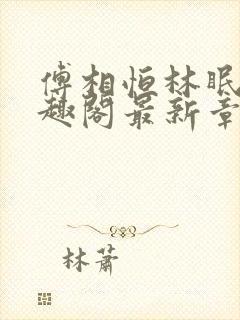 傅相恒林眠
趣阁最新章
林萧